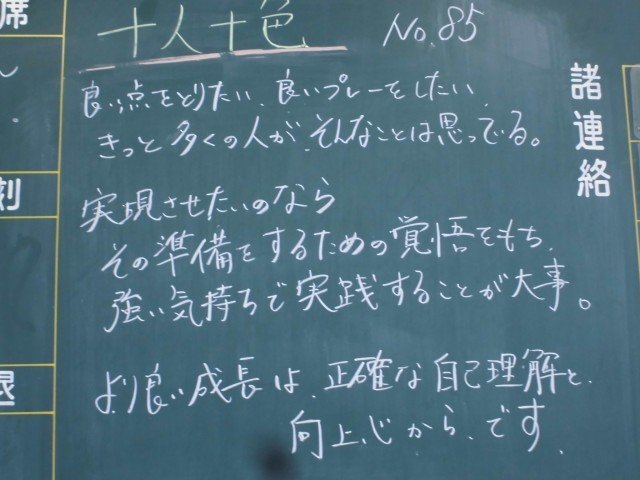 十人十色 No.85
良い点をとりたい、良いプレーをしたい、
きっと多くの人が、そんなことは思っている。
実現させたいのなら
その準備をするための覚悟をもち、
強い気持ちで実践することが大事。
より良い成長は、正確な自己理解と、
向上心から、です。
諸連絡
席
刻
退